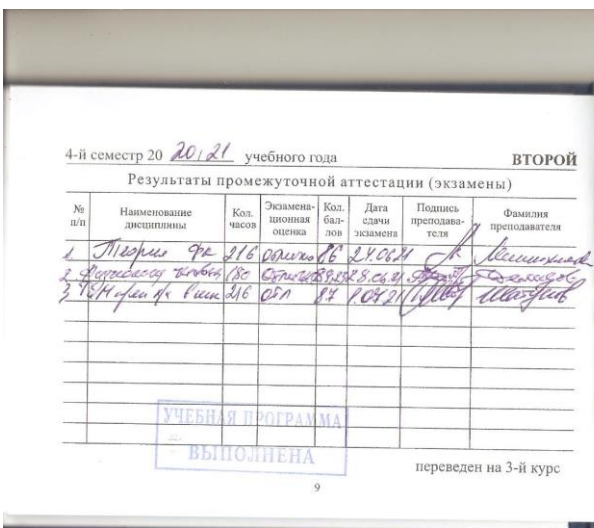 4-й семестр 20 20/21 учебного года ВТОРОЙ
Результаты промежуточной аттестации (экзамены)
№ п/п Наименование дисциплины Кол. часов Экзамена-ционная оценка Кол. бал-лов Дата сдачи экзамена Подпись преподава-теля Фамилия преподавателя
1 Теория ФК 216 отлично 86 24.06.21
2 180 28.06.21
3 216 отл 87
УЧЕБНАЯ ПРОГРАММА
ВЫПОЛНЕНА
переведен на 3-й курс
9